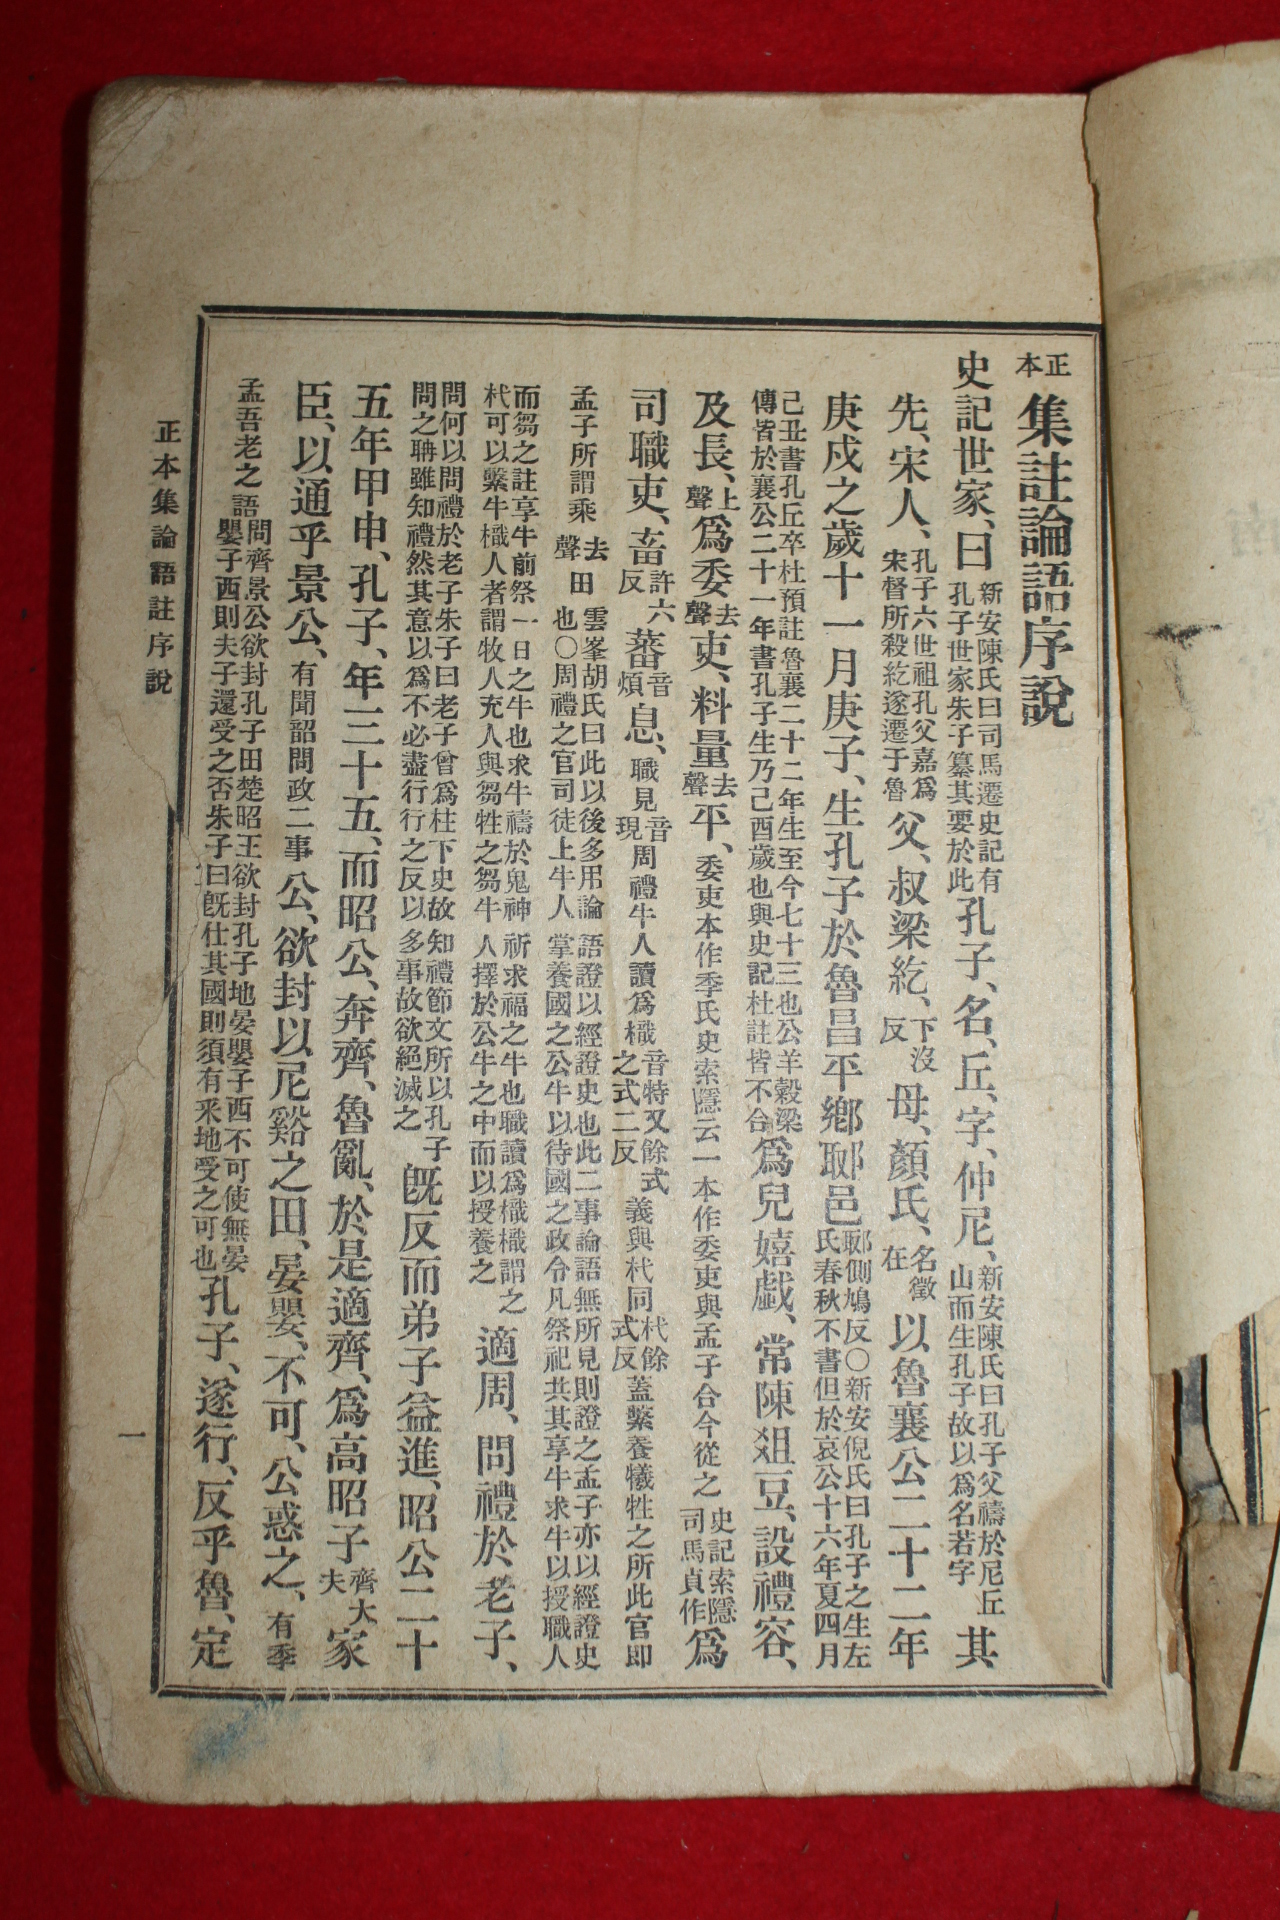 正本集註論語序說
史記世家、曰新安陳氏曰司馬遷史記有孔子世家朱子纂其要於此孔子、名、丘、字、仲尼、新安陳氏曰孔子父禱於尼丘山而生孔子故以爲名若字其
先、宋人、孔子六世祖孔父嘉爲宋督所殺紇遂遷于魯父、叔梁紇、下沒反母、顏氏、名徵在以魯襄公二十二年
庚戌之歲十一月庚子、生孔子於魯昌平鄕郰邑郰側鳩反○新安倪氏曰孔子之生左氏春秋不書但於哀公十六年夏四月
己丑書孔丘卒杜預註魯襄二十二年生至今七十三也公羊穀梁傳皆於襄公二十一年書孔子生乃己酉歲也與史記杜註皆不合爲兒嬉戲、常陳俎豆、設禮容、
及長、上聲爲委去聲吏、料量去聲平、委吏本作季氏史索隱云一本作委吏與孟子合今從之史記索隱司馬貞作爲
司職吏、畜許六反蕃音煩息、職見音現周禮牛人讀爲樴音特又餘式之式二反義與杙同杙餘式反蓋繫養犧牲之所此官卽
孟子所謂乘去聲田雲峯胡氏曰此以後多用論語證以經證史也此二事論語無所見則證之孟子亦以經證史也○周禮之官司徒上牛人掌養國之公牛以待國之政令凡祭祀共其享牛求牛以授職人
而芻之註享牛前祭一日之牛也求牛禱於鬼神祈求福之牛也職讀爲樴樴謂之杙可以繫牛樴人者謂牧人充人與芻牲之芻牛人擇於公牛之中而以授養之適周、問禮於老子、
問何以問禮於老子朱子曰老子曾爲柱下史故知禮節文所以孔子問之聃雖知禮然其意以爲不必盡行行之反以多事故欲絕滅之旣反而弟子益進、昭公二十
五年甲申、孔子、年三十五、而昭公、奔齊、魯亂、於是適齊、爲高昭子齊大夫家
臣、以通乎景公、有聞韶問政二事公、欲封以尼谿之田、晏嬰、不可、公惑之、有季
孟吾老之語問齊景公欲封孔子田楚昭王欲封孔子地晏嬰子西不可使無晏嬰子西則夫子還受之否朱子曰旣仕其國則須有采地受之可也孔子、遂行、反乎魯、定
正本集論語註序說
一